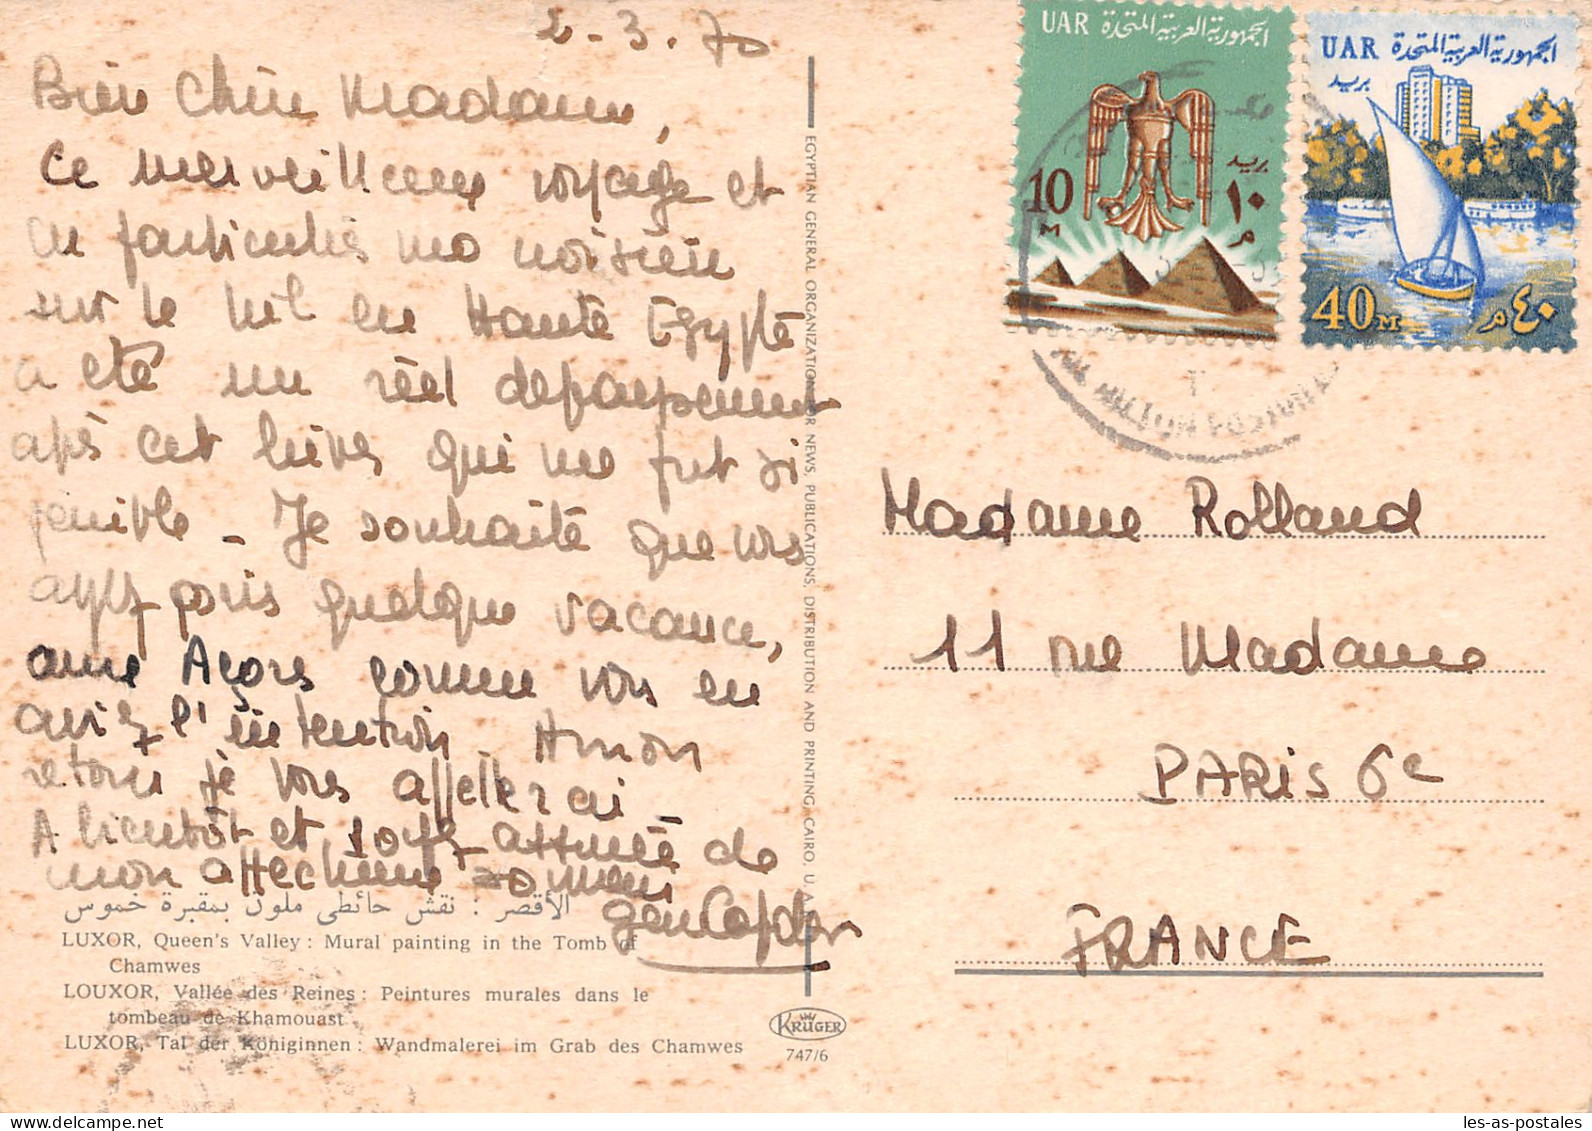 2.3.70
Bien Chère Madame,
Ce merveilleux voyage et
en particulier ma croisière
sur le Nil en Haute Egypte
a été un réel dépaysement
après cet hiver qui me fut si
pénible - Je souhaite que vous
ayez pris quelque vacance,
aux Açores comme vous en
aviez l'intention. A mon
retour je vous appellerai -
A bientôt et soyez assurée de
mon attachement
الأقصر : نقش حائطى ملون بمقبرة خموس
LUXOR, Queen's Valley: Mural painting in the Tomb of
Chamwes
LOUXOR, Vallée des Reines: Peintures murales dans le
tombeau de Khamouast
LUXOR, Tal der Königinnen: Wandmalerei im Grab des Chamwes
EGYPTIAN GENERAL ORGANIZATION FOR NEWS, PUBLICATIONS, DISTRIBUTION AND PRINTING, CAIRO, U.A.R.
KRÜGER
747/6
UAR الجمهورية العربية المتحدة
بريد
10 M
١٠ م
UAR الجمهورية العربية المتحدة
بريد
40 M
٤٠ م
Madame Rolland
11 rue Madame
PARIS 6e
FRANCE
les-as-postales